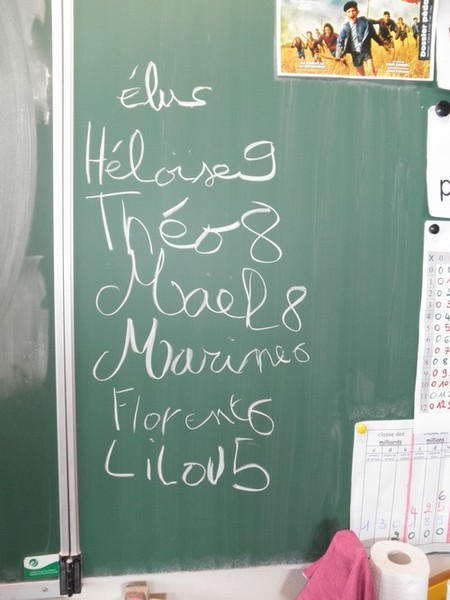 élus
Héloïse 9
Théo 8
Maël 8
Marine 6
Florent 6
Lilou 5
Dossier péda
p
X 0
classe des
milliards
millions